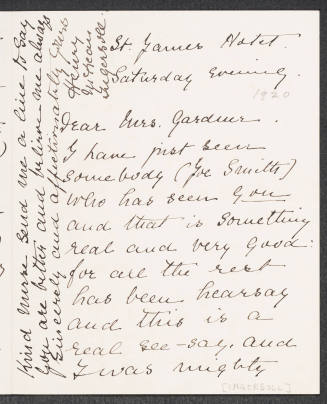 St. James Hotel.
Saturday Evening.
1920
Dear Mrs. Gardner.
I have just seen
somebody (Joe Smith)
who has seen you
and that is something
real and very good:
for all the rest
has been hearsay
and this is a
real see-say. and
I was mighty
[INGERSOLL]
Kind Nurse send me a line to say
you are better and believe me always
Sincerely and affectionately yours
Henry
Ingersoll.